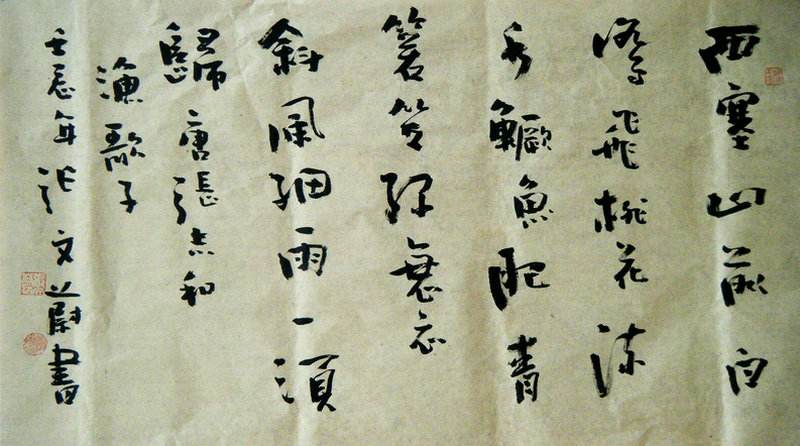 西塞山前白
鷺飛桃花流
水鱖魚肥青
箬笠綠蓑衣
斜風細雨不須
歸 唐張志和
漁歌子
壬辰年張文蔚書